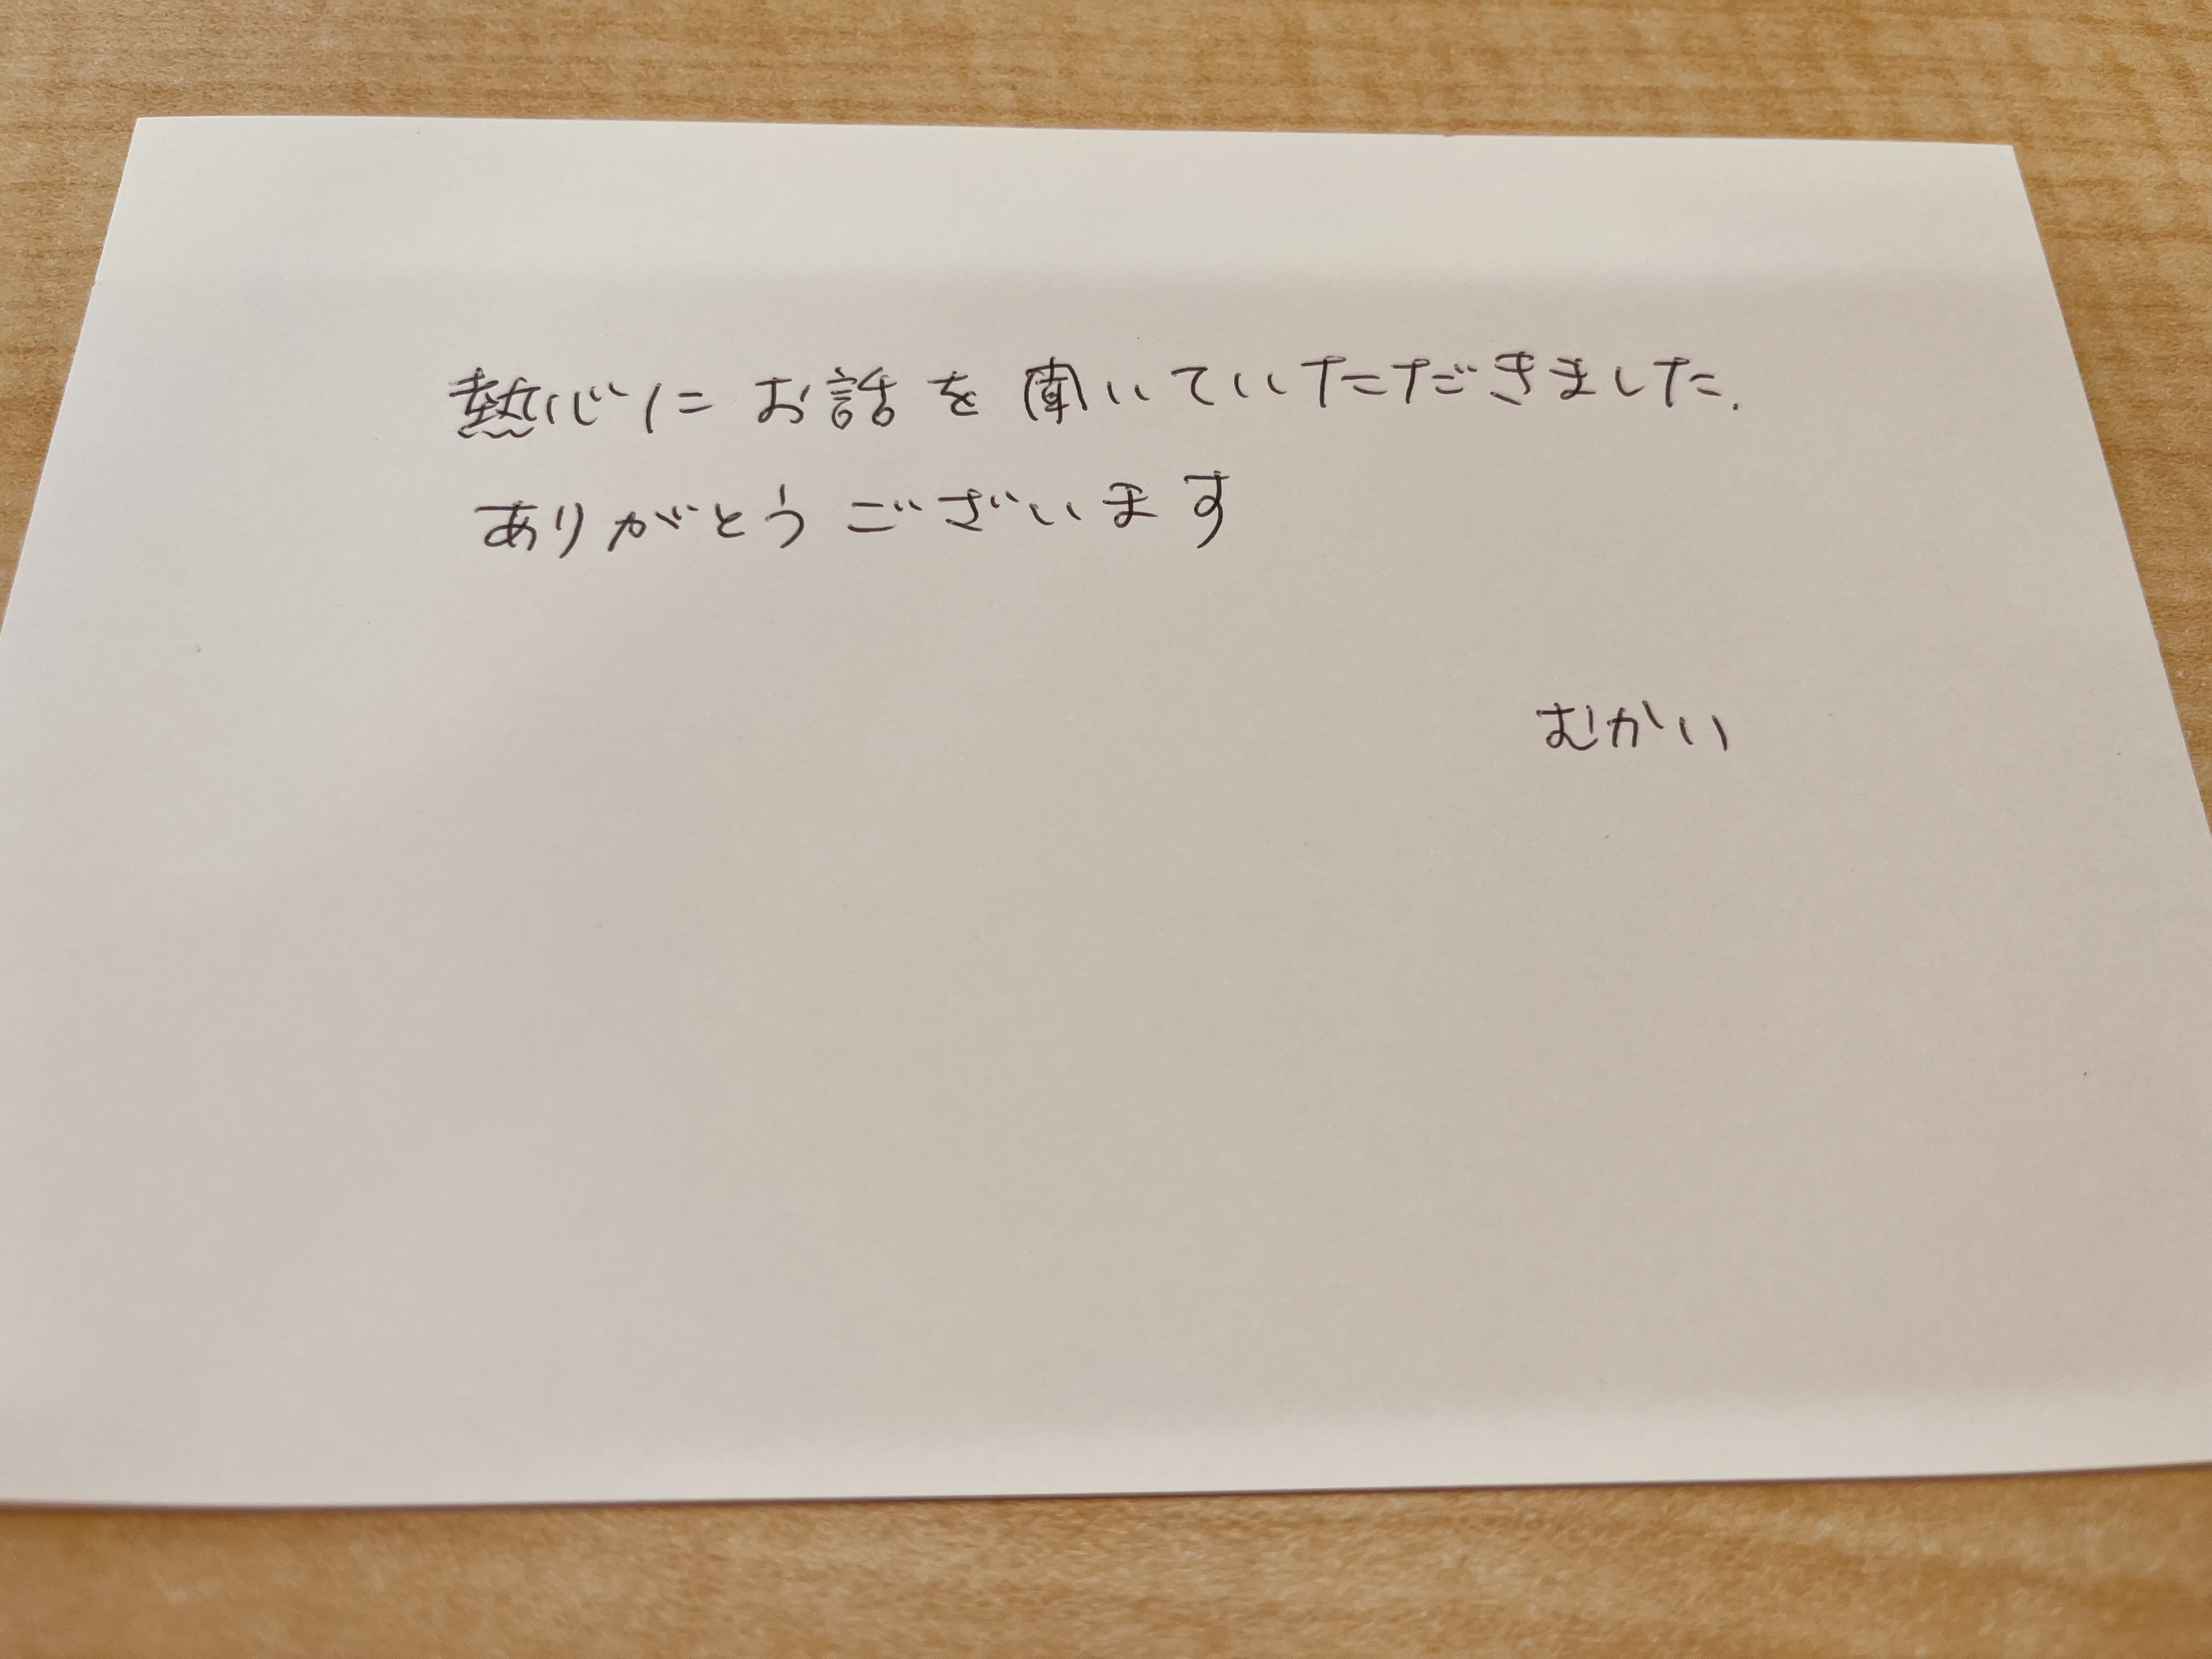 熱心にお話を聞いていただきました.
ありがとうございます
むかい